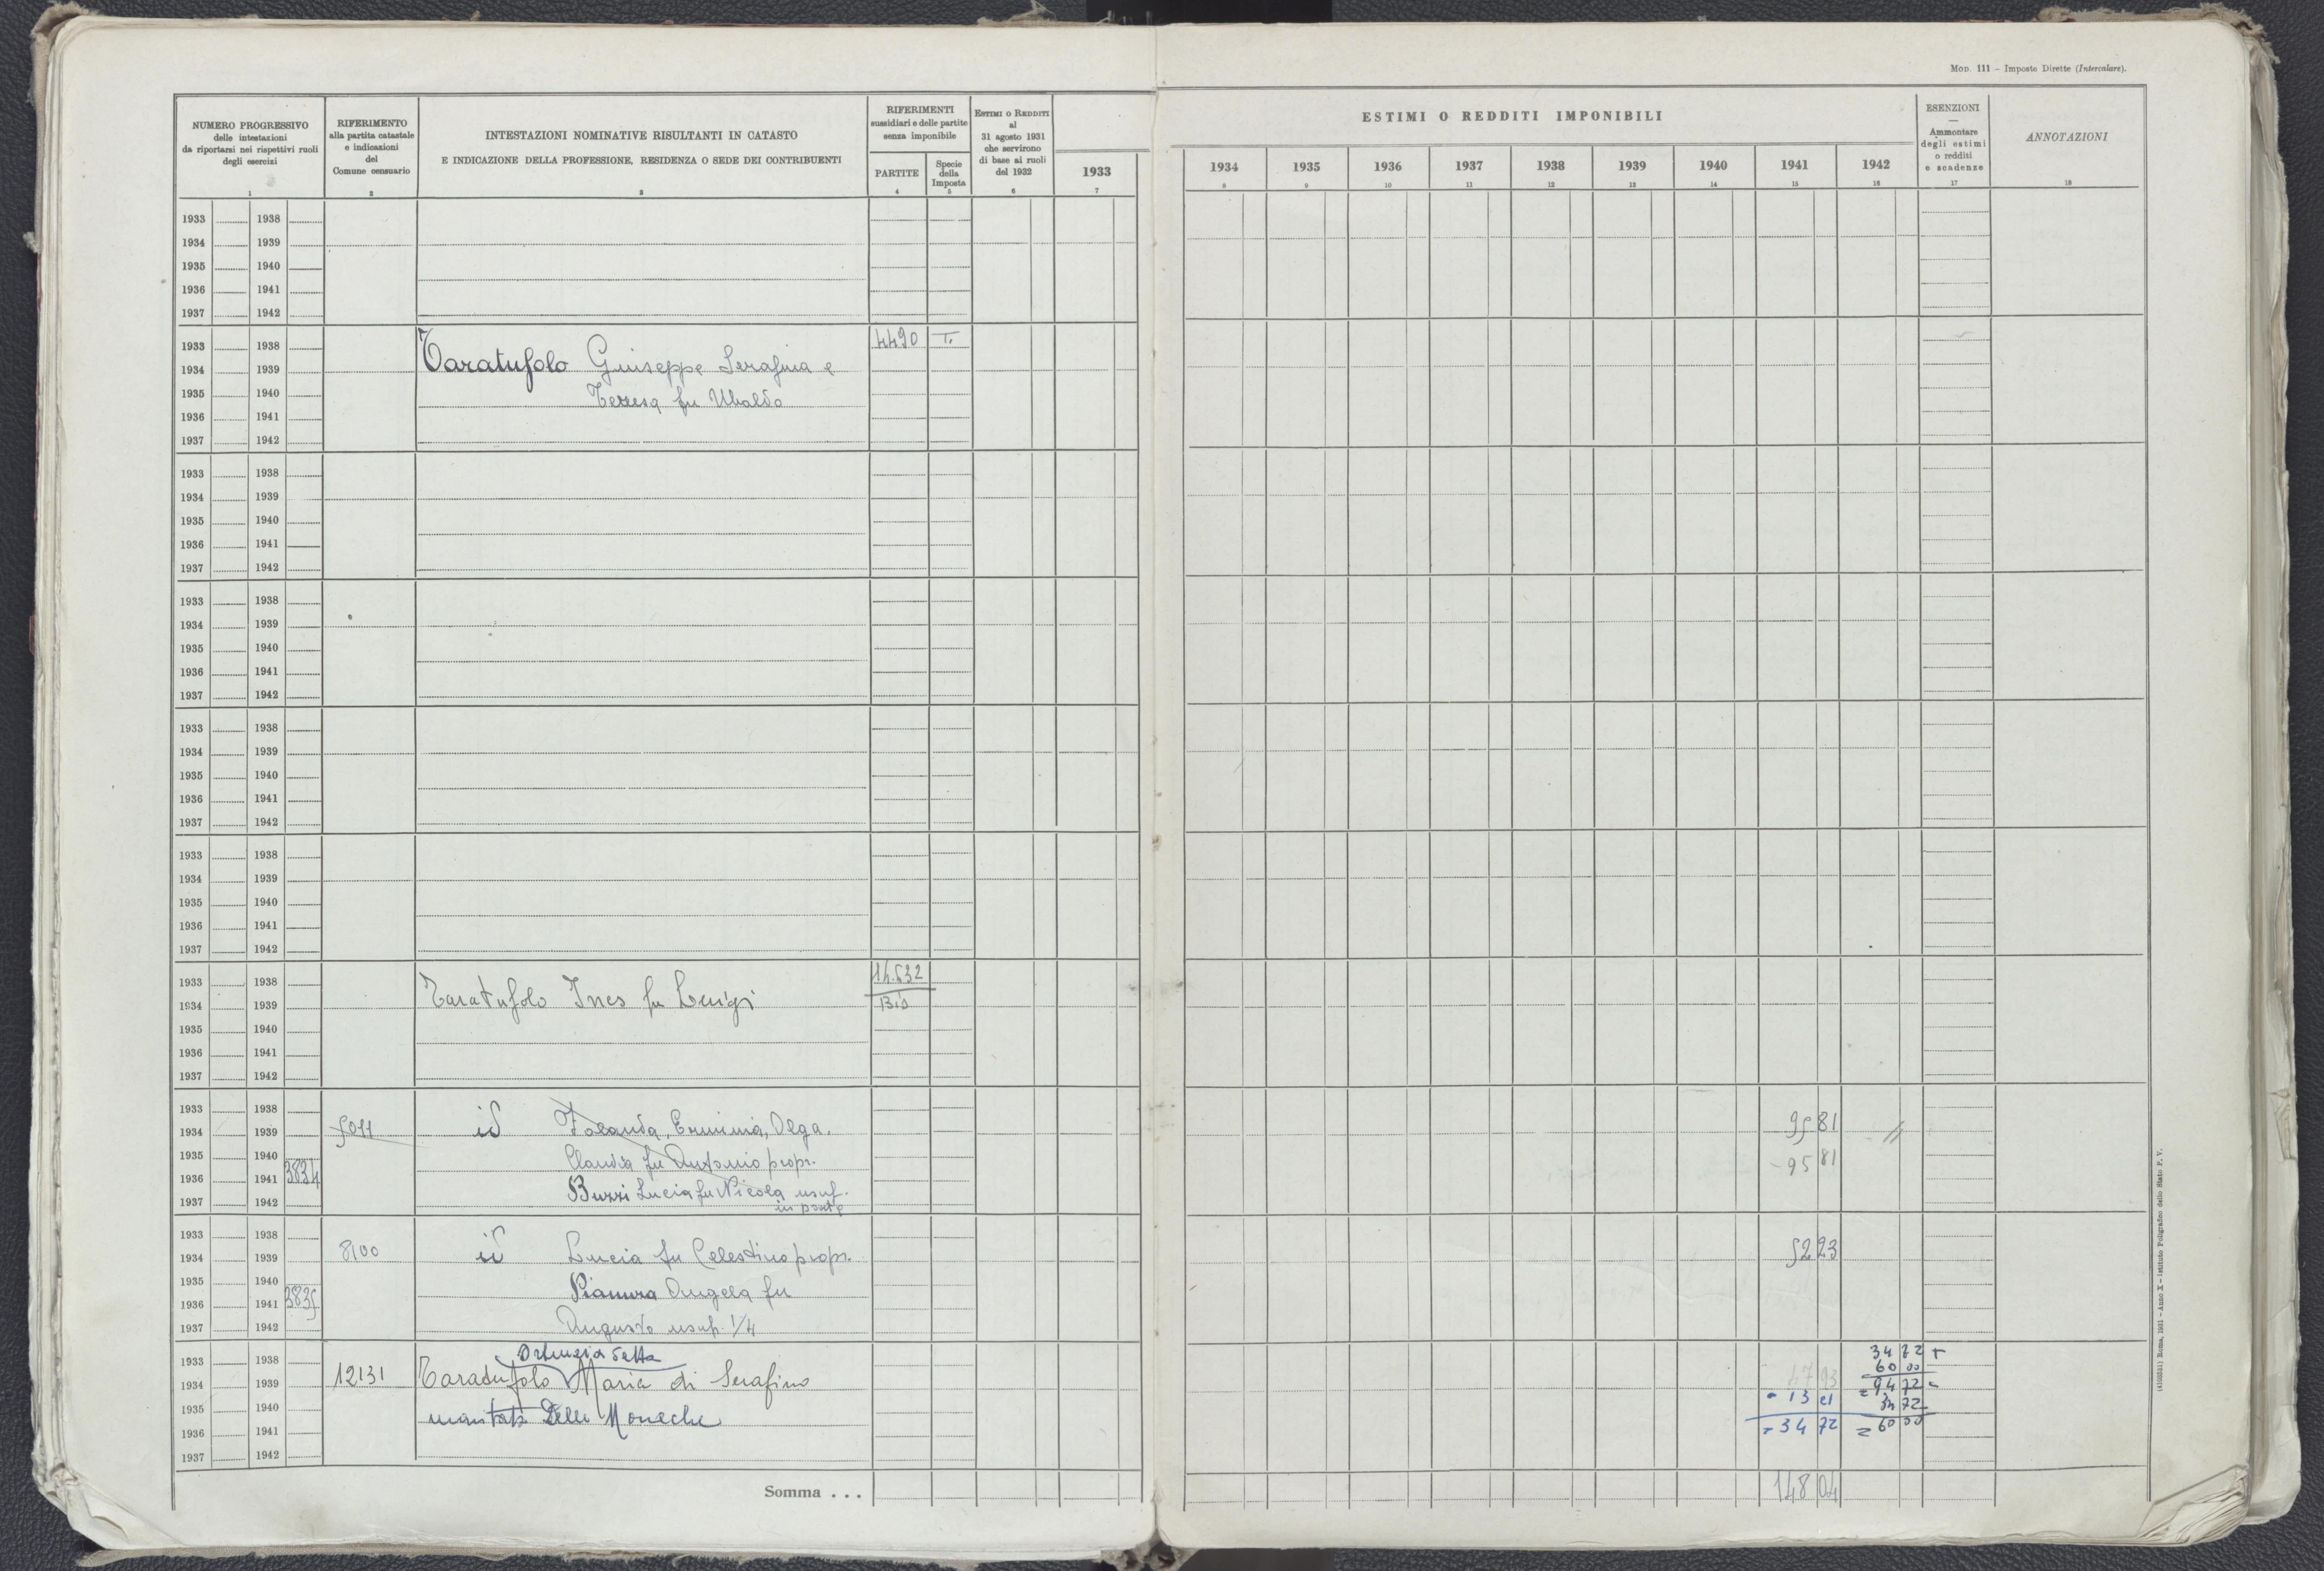 MOD. 111 – Imposte Dirette (Intercalare).
NUMERO PROGRESSIVO
delle intestazioni
da riportarsi nei rispettivi ruoli
degli esercizi
1
RIFERIMENTO
alla partita catastale
e indicazioni
del
Comune censuario
2
INTESTAZIONI NOMINATIVE RISULTANTI IN CATASTO
E INDICAZIONE DELLA PROFESSIONE, RESIDENZA O SEDE DEI CONTRIBUENTI
3
RIFERIMENTI
sussidiari e delle partite
senza imponibile
PARTITE
4
Specie
della
Imposta
5
ESTIMI O REDDITI
al
31 agosto 1931
che servirono
di base ai ruoli
del 1932
6
1933
7
ESTIMI O REDDITI IMPONIBILI
1934 1935 1936 1937 1938 1939 1940 1941 1942
8 9 10 11 12 13 14 15 16
ESENZIONI
—
Ammontare
degli estimi
o redditi
e scadenze
17
ANNOTAZIONI
18
1933 1938
1934 1939
1935 1940
1936 1941
1937 1942
1933 1938 4490 T.
1934 1939 Taratufolo Giuseppe Serafina e
1935 1940 Teresa fu Ubaldo
1936 1941
1937 1942
1933 1938
1934 1939
1935 1940
1936 1941
1937 1942
1933 1938
1934 1939
1935 1940
1936 1941
1937 1942
1933 1938
1934 1939
1935 1940
1936 1941
1937 1942
1933 1938
1934 1939
1935 1940
1936 1941
1937 1942
1933 1938 14.632
1934 1939 Taratufolo Ines fu Luigi Bis
1935 1940
1936 1941
1937 1942
1933 1938
1934 1939 5011 id Iolanda, Erminia, Olga. 95 81 //
1935 1940 Claudia fu Antonio propr. - 95 81
1936 1941 3834 Buzzi Lucia fu Nicola usuf.
1937 1942 in parte
1933 1938
1934 1939 8100 id Lucia fu Celestino propr. 52 23
1935 1940
1936 1941 3835 Pianura Angela fu
1937 1942 Augusto usuf. 1/4
1933 1938 Ortenzia detta 34 72 +
1934 1939 12131 Taradufolo Maria di Serafino 47 93 60 00
= 94 72 -
1935 1940 maritata Delle Monache - 13 21 34 72
1936 1941 = 34 72 = 60 00
1937 1942
Somma . . . 148 04
(4103531) Roma, 1931 - Anno X - Istituto Poligrafico dello Stato P. V.